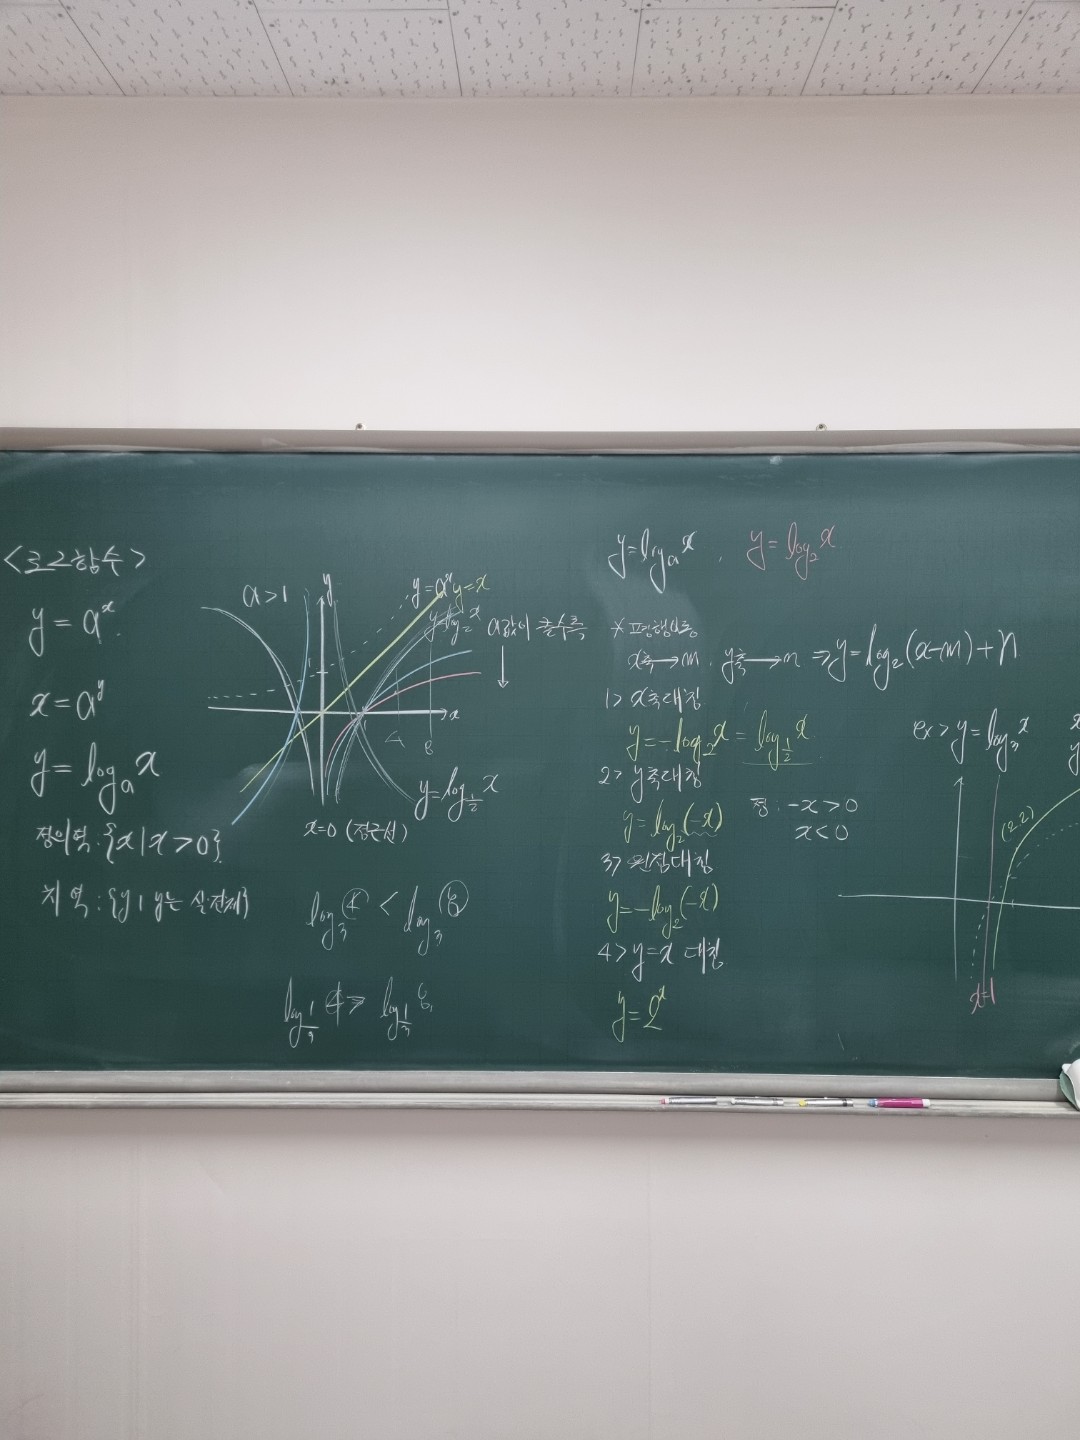 <로그함수>
y = aˣ.
x = aʸ
y = logₐ x
정의역: {x | x > 0}
치역: {y | y는 실전체}
a > 1
y
y=aˣ
y=x
y=log₂ x
x
4
8
y=log_{1/2} x
x=0 (점근선)
a값이 클수록
log₃ 4 < log₃ 8
log_{1/3} 4 > log_{1/3} 8
y=logₐ x , y=log₂ x
* 평행이동
x축→m, y축→n ⇒ y=log₂(x-m)+n
1> x축대칭
y=-log₂ x = log_{1/2} x
2> y축대칭
y=log₂(-x)
정: -x>0
x<0
3> 원점대칭
y=-log₂(-x)
4> y=x 대칭
y=2ˣ
ex> y=log₃ x
y
(2,2)
x=1